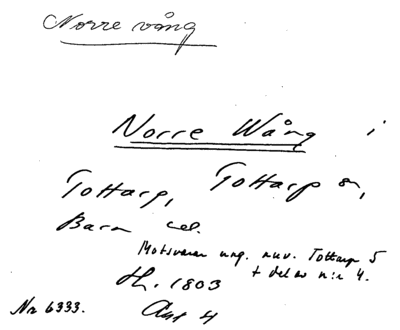 Norre vång
Norre Wång i
Tottarp, Tottarp sn,
Bara hd.
Motsvarar ung. nuv. Tottarp 5
+ del av n:r 4.
H. 1803
Nr 6333. Akt 4